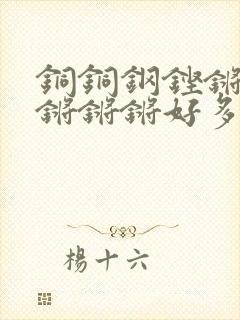 銅銅鋼鏗鏘
鏘鏘鏘好多
楊十六